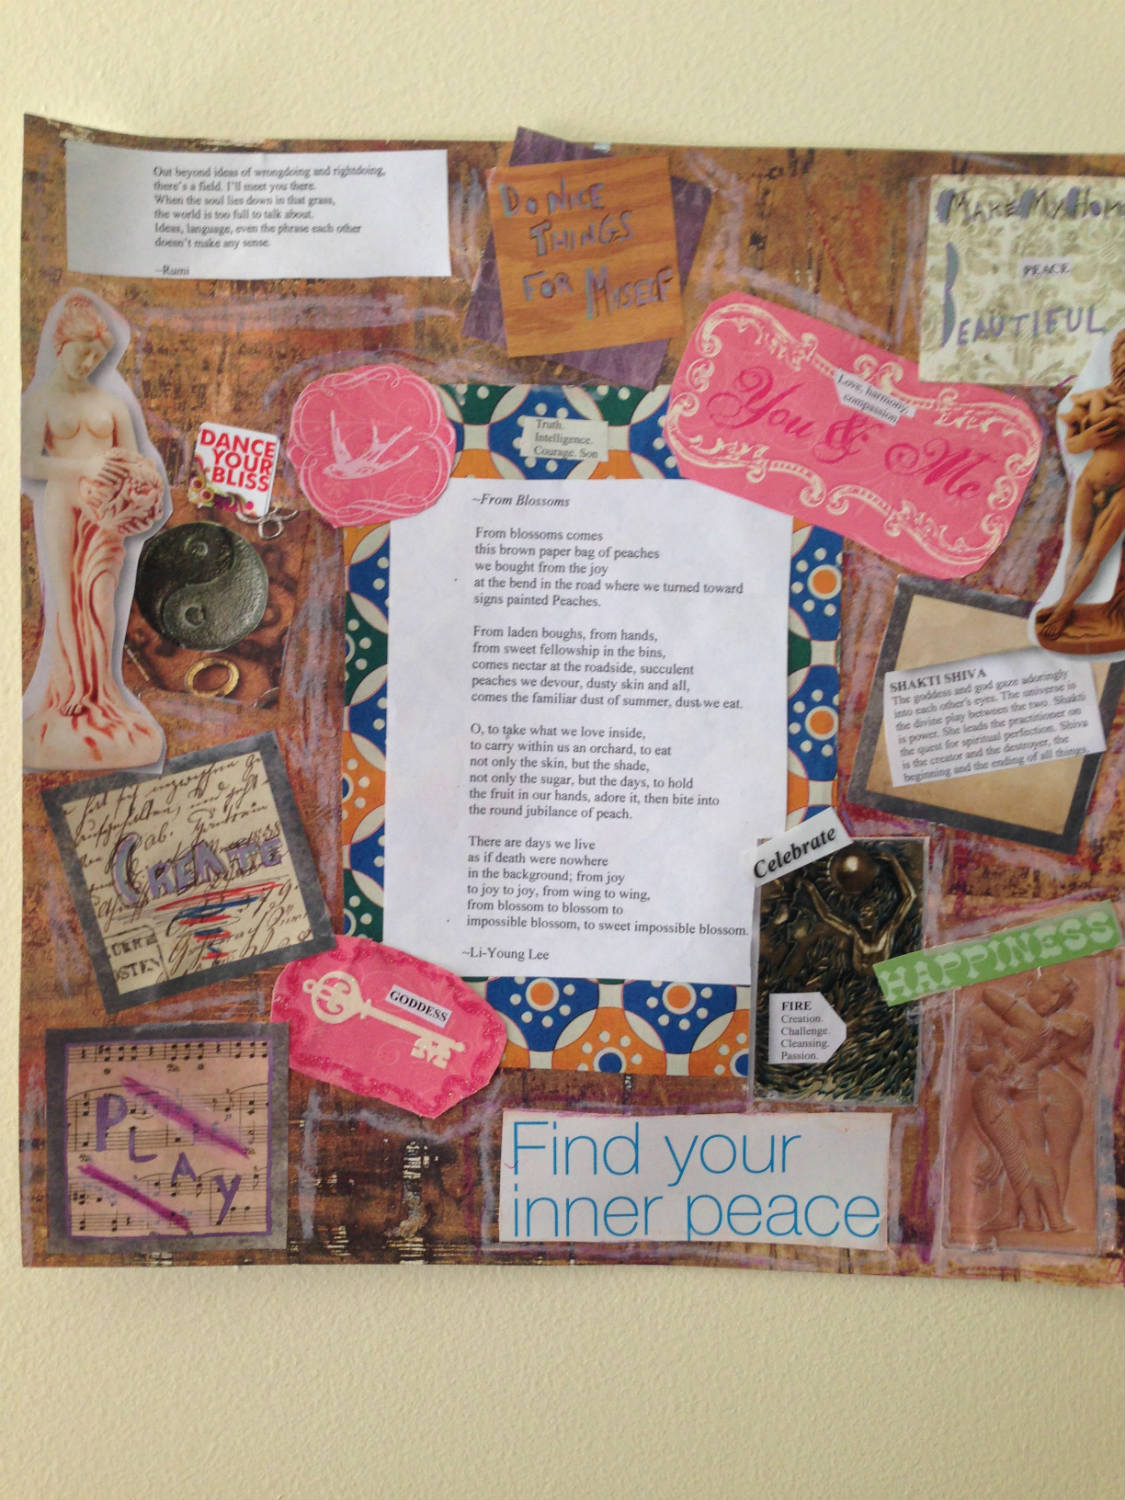 Out beyond ideas of wrongdoing and rightdoing,
there's a field. I'll meet you there.
When the soul lies down in that grass,
the world is too full to talk about.
Ideas, language, even the phrase each other
doesn't make any sense.
~Rumi
DO NICE
THINGS
FOR MYSELF
MAKE MY HOM
PEACE
BEAUTIFUL
DANCE
YOUR
BLISS
Love, harmony,
compassion
You & Me
Truth.
Intelligence.
Courage. Son
~From Blossoms
From blossoms comes
this brown paper bag of peaches
we bought from the joy
at the bend in the road where we turned toward
signs painted Peaches.
From laden boughs, from hands,
from sweet fellowship in the bins,
comes nectar at the roadside, succulent
peaches we devour, dusty skin and all,
comes the familiar dust of summer, dust we eat.
O, to take what we love inside,
to carry within us an orchard, to eat
not only the skin, but the shade,
not only the sugar, but the days, to hold
the fruit in our hands, adore it, then bite into
the round jubilance of peach.
There are days we live
as if death were nowhere
in the background; from joy
to joy to joy, from wing to wing,
from blossom to blossom to
impossible blossom, to sweet impossible blossom.
~Li-Young Lee
SHAKTI SHIVA
The goddess and god gaze adoringly
into each other's eyes. The universe is
the divine play between the two. Shakti
is power. She leads the practitioner on
the quest for spiritual perfection. Shiva
is the creator and the destroyer, the
beginning and the ending of all things.
CREATE
Celebrate
HAPPINESS
FIRE
Creation.
Challenge.
Cleansing.
Passion.
GODDESS
PLAY
Find your
inner peace